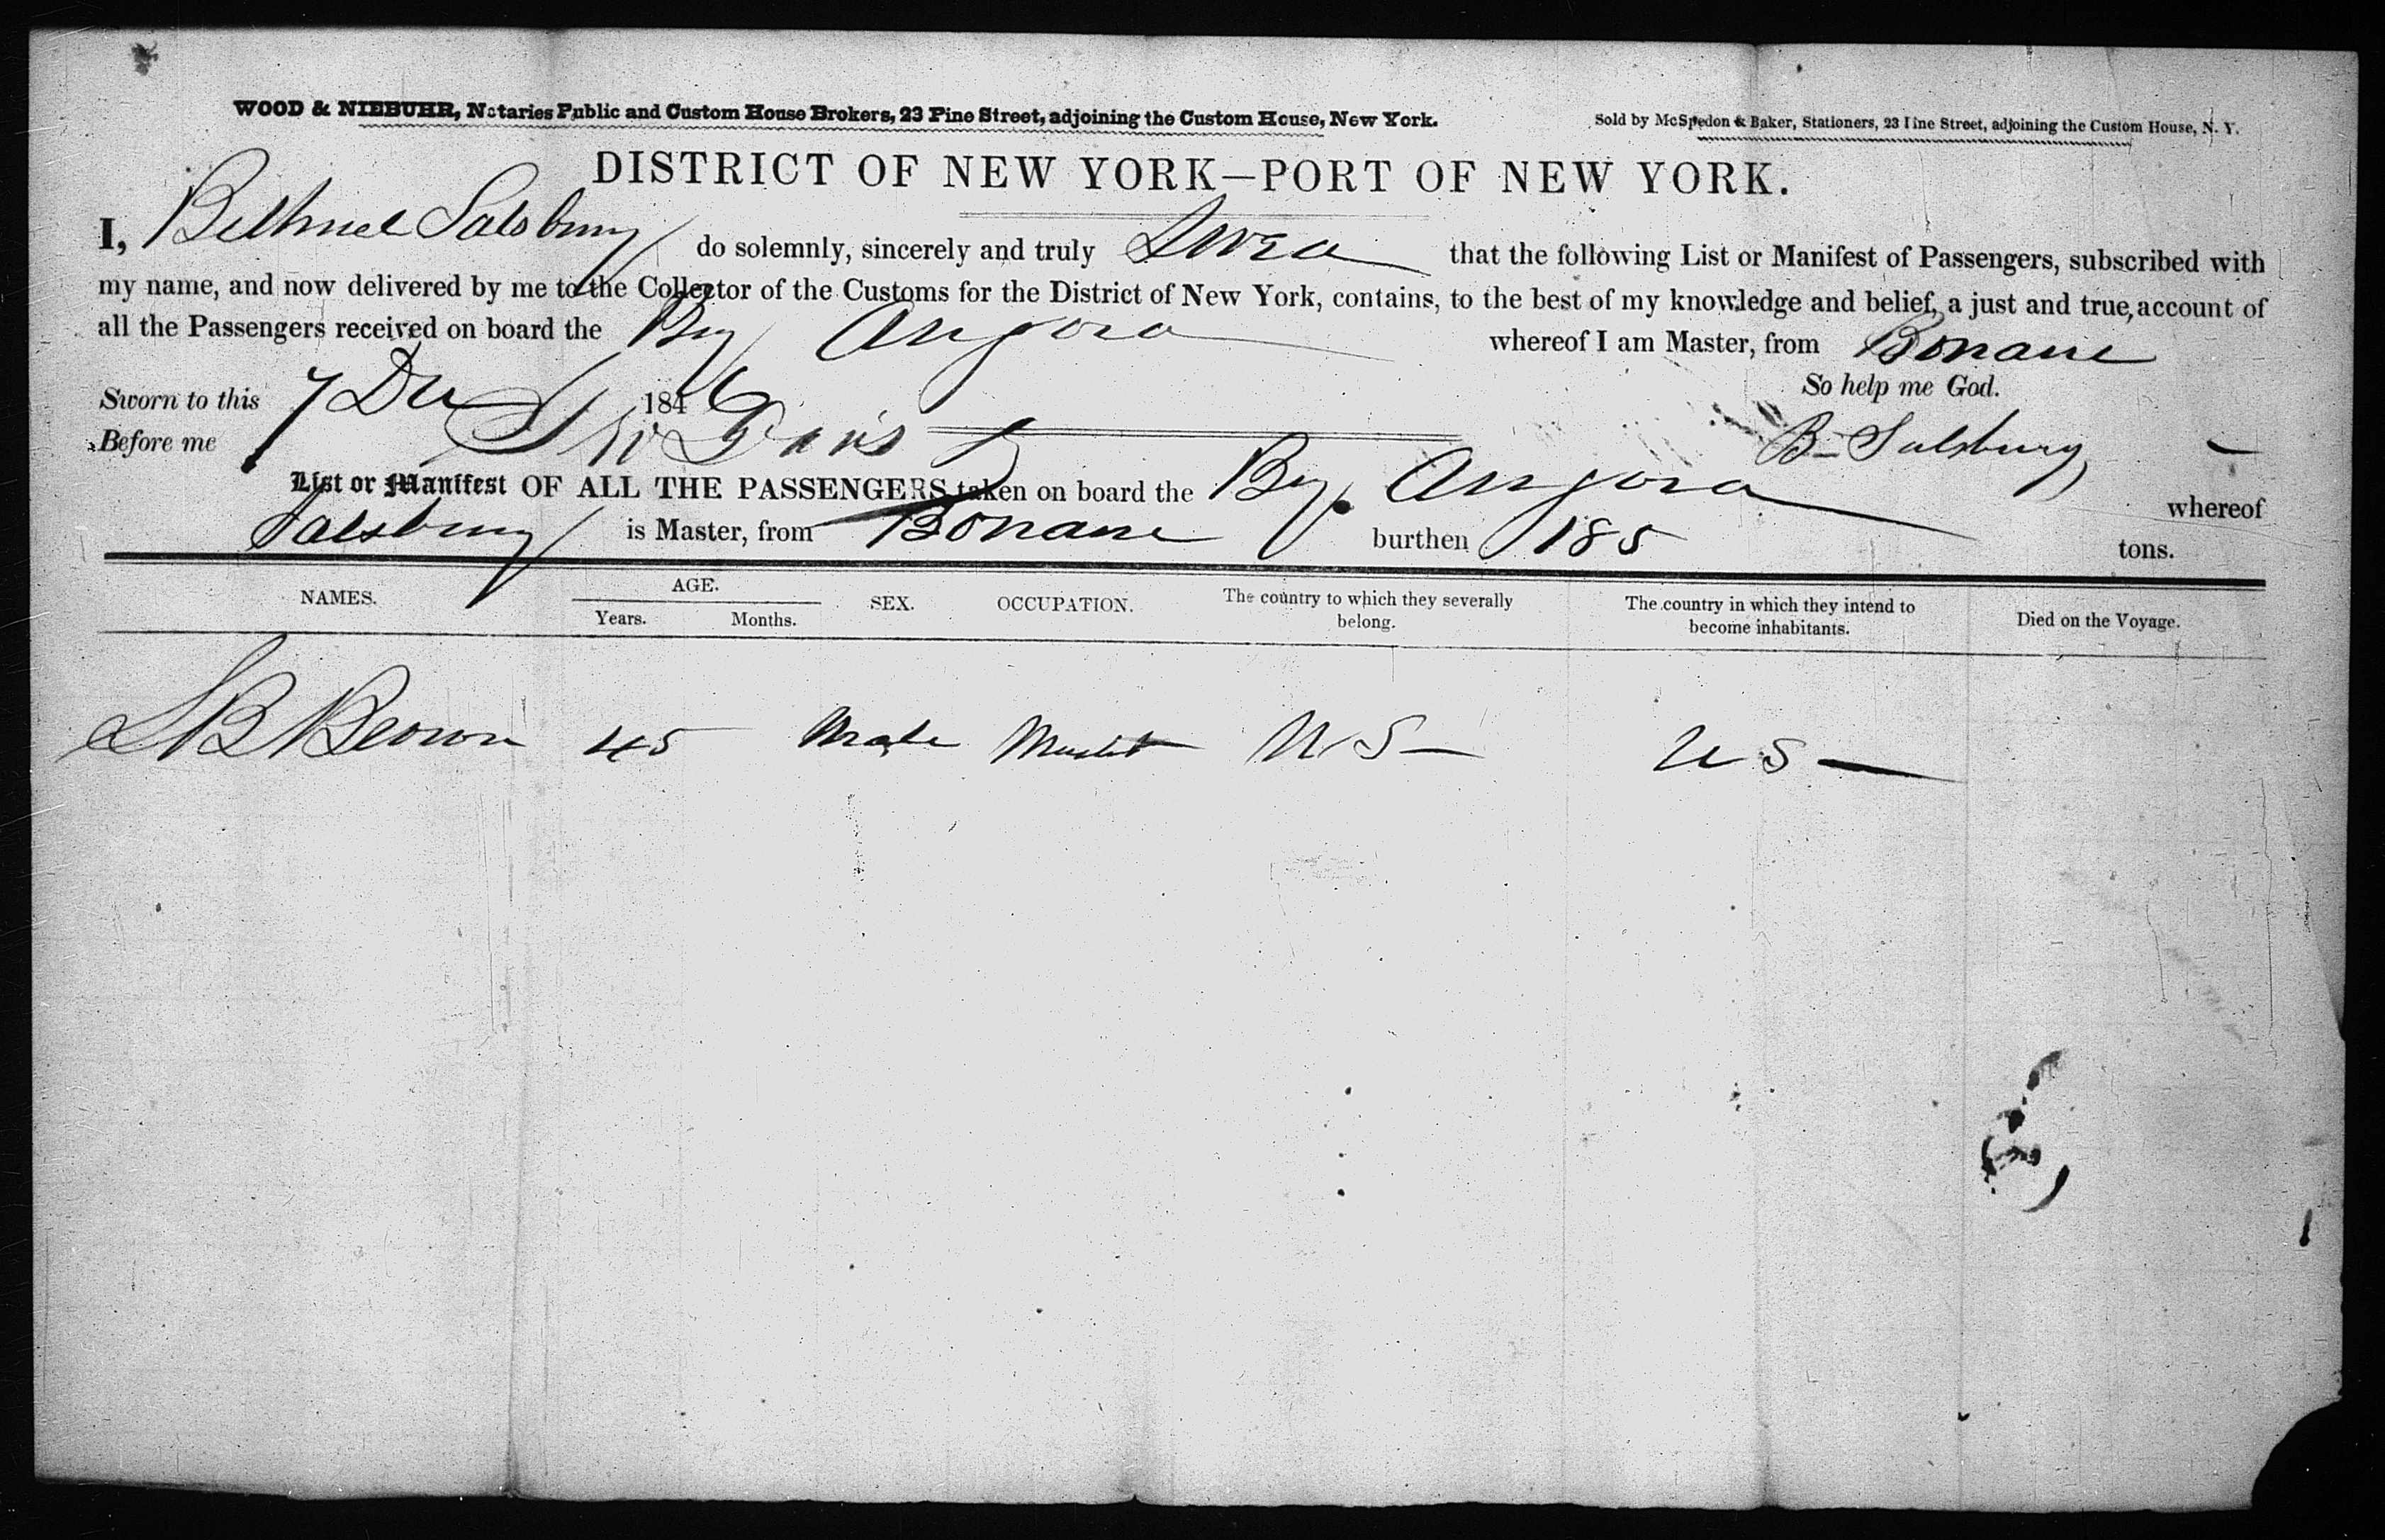 WOOD & NIEBUHR, Notaries Public and Custom House Brokers, 23 Pine Street, adjoining the Custom House, New York.
Sold by McSpedon & Baker, Stationers, 23 Pine Street, adjoining the Custom House, N. Y.
DISTRICT OF NEW YORK—PORT OF NEW YORK.
I, Bethuel Salsbury do solemnly, sincerely and truly Swear that the following List or Manifest of Passengers, subscribed with
my name, and now delivered by me to the Collector of the Customs for the District of New York, contains, to the best of my knowledge and belief, a just and true account of
all the Passengers received on board the Brig Angora whereof I am Master, from Bonaire
So help me God.
Sworn to this 7 Dec 1846
Before me Davis
B Salsbury
List or Manifest OF ALL THE PASSENGERS taken on board the Brig Angora whereof
Salsbury is Master, from Bonaire burthen 185 tons.
NAMES. AGE. SEX. OCCUPATION. The country to which they severally belong. The country in which they intend to become inhabitants. Died on the Voyage.
Years. Months.
S B Brown 45 Male U S U S